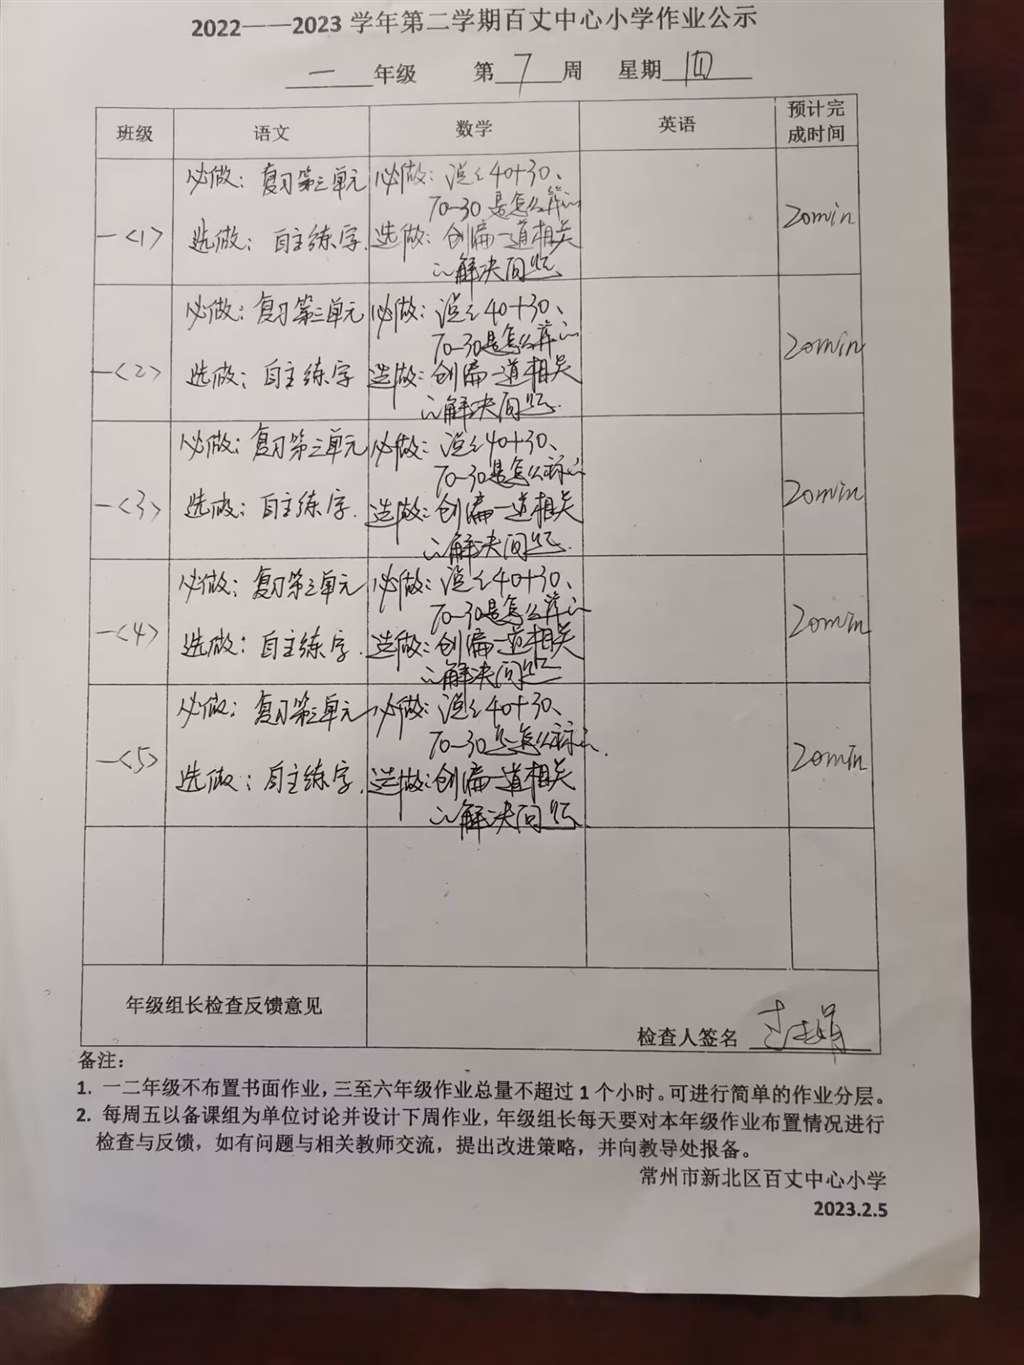 2022——2023 学年第二学期百丈中心小学作业公示
一 年级 第 7 周 星期 四
班级 语文 数学 英语 预计完成时间
一<1> 必做：复习第三单元 必做：说说40+30、 20min
70-30是怎么算的
选做：自主练字. 选做：创编一道相关
的解决问题.
一<2> 必做：复习第三单元 必做：说说40+30、 20min
70-30是怎么算的
选做：自主练字 选做：创编一道相关
的解决问题.
一<3> 必做：复习第三单元 必做：说说40+30、 20min
70-30是怎么算的
选做：自主练字. 选做：创编一道相关
的解决问题.
一<4> 必做：复习第三单元 必做：说说40+30、 20min
70-30是怎么算的
选做：自主练字. 选做：创编一道相关
的解决问题
一<5> 必做：复习第三单元 必做：说说40+30、 20min
70-30是怎么算的.
选做：自主练字. 选做：创编一道相关
的解决问题
年级组长检查反馈意见
检查人签名
备注：
1. 一二年级不布置书面作业，三至六年级作业总量不超过 1 个小时。可进行简单的作业分层。
2. 每周五以备课组为单位讨论并设计下周作业，年级组长每天要对本年级作业布置情况进行
检查与反馈，如有问题与相关教师交流，提出改进策略，并向教导处报备。
常州市新北区百丈中心小学
2023.2.5